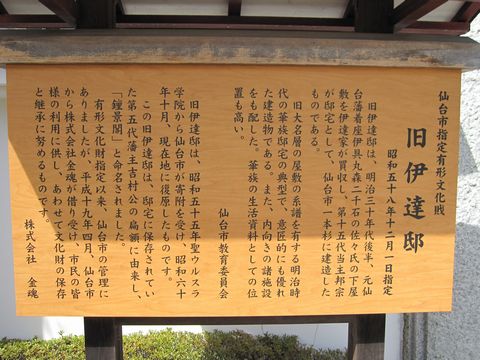 仙台市指定有形文化財
旧伊達邸
昭和五十八年十二月一日指定
旧伊達邸は、明治三十年代後半、元仙
台藩着座伊具丸森二千石の佐々氏の下屋
敷を伊達家が買収し、第十五代当主邦宗
が邸宅として、仙台市一本杉に建造した
ものである。
旧大名層の屋敷の系譜を有する明治時
代の華族邸宅の典型で、意匠的にも優れ
た建造物である。また、内向きの諸施設
をも配した、華族の生活資料としての位
置も高い。
仙台市教育委員会
旧伊達邸は、昭和五十五年聖ウルスラ
学院から仙台市が寄附を受け、昭和六十
年十月、現在地に復原したものです。
この旧伊達邸は、邸宅に保存されてい
た第五代藩主吉村公の扁額に由来し、
「鍾景閣」と命名されました。
有形文化財指定以来、仙台市の管理に
ありましたが、平成十九年四月、仙台市
から株式会社金魂が借り受け、市民の皆
様の利用に供し、あわせて文化財の保存
と継承に努めるものです。
株式会社 金魂